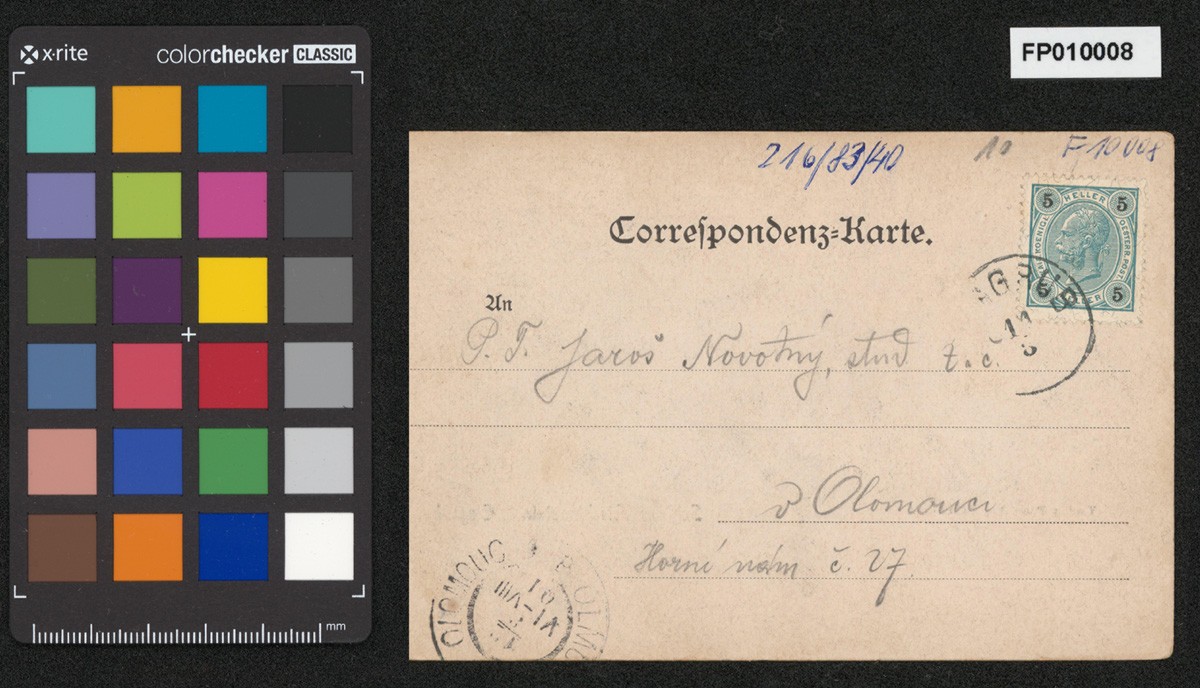 x·rite
colorchecker CLASSIC
mm
FP010008
216/83/40
10
F 10008
5 HELLER 5
OESTERR. POST.
5 5
Correſpondenz=Karte.
An
P. T. Jaroš Novotný, stud t. č.
v Olomouci
Horní nám. č. 27.
OLOMOUC
OLMÜ